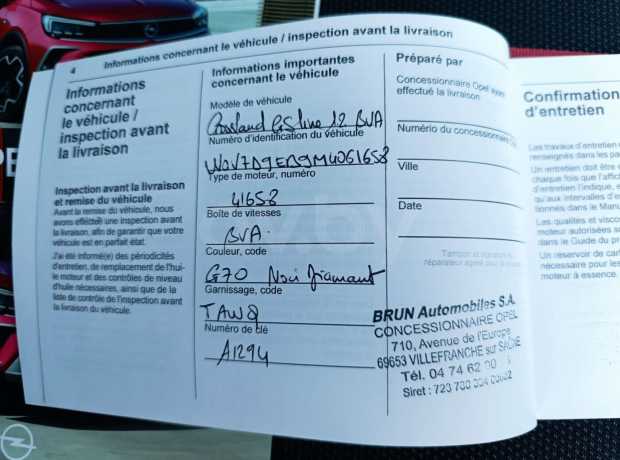 4
Informations concernant le véhicule / inspection avant la livraison
Informations
concernant
le véhicule /
inspection avant
la livraison
Inspection avant la livraison
et remise du véhicule
Avant la remise du véhicule, nous
avons effectué une inspection avant
la livraison, afin de garantir que votre
véhicule est en parfait état.
J'ai été informé(e) des périodicités
d'entretien, de remplacement de l'hui-
le moteur et des contrôles de niveau
d'huile nécessaires, ainsi que de la
liste de contrôle de l'inspection avant
la livraison du véhicule.
Informations importantes
concernant le véhicule
Modèle de véhicule
Crossland GS line 1.2 BVA
Numéro d'identification du véhicule
W0V7D9EB9M4061658
Type de moteur, numéro
41658
Boîte de vitesses
BVA.
Couleur, code
G70 Noir Diamant
Garnissage, code
TAWQ
Numéro de clé
A1294
Préparé par
Concessionnaire Opel ayant
effectué la livraison
Numério du concessionnaire
Ville
Date
Tampon et signature du
réparateur agréé
BRUN Automobiles S.A.
CONCESSIONNAIRE OPEL
710, Avenue de l'Europe
69653 VILLEFRANCHE sur SAÔNE
Tél. 04 74 62
Siret : 723
Confirmation
d'entretien
Les travaux d'entretien
renseignés dans les
Un entretien doit être
chaque fois que
d'entretien l'indique,
qu'aux intervalles d'
tionnés dans le
Les qualités et
moteur autorisées
dans le Guide du
Un réservoir de
nécessaire pour les
moteur à essence.